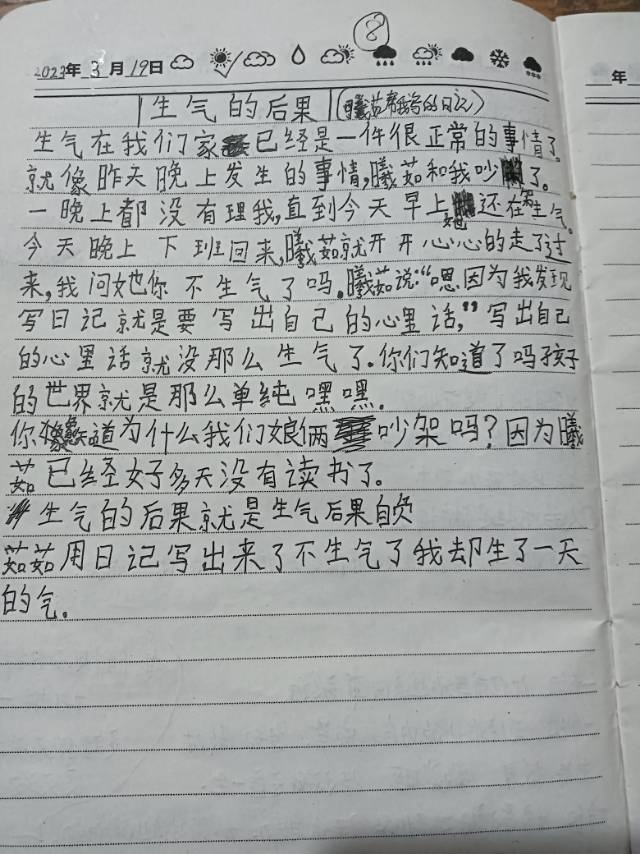 ⑧
2023年 3月 19日
生气的后果 (曦茹帮我写的日记)
生气在我们家已经是一件很正常的事情了。
就像昨天晚上发生的事情,曦茹和我吵了。
一晚上都没有理我,直到今天早上她还在生气。
今天晚上下班回来,曦茹就开开心心的走了过
来,我问她你不生气了吗。曦茹说:“嗯因为我发现
写日记就是要写出自己的心里话,”写出自己
的心里话就没那么生气了.你们知道了吗孩子
的世界就是那么单纯嘿嘿.
你知道为什么我们娘俩吵架吗?因为曦
茹已经好多天没有读书了。
生气的后果就是生气后果自负
茹茹用日记写出来了不生气了我却生了一天
的气.
年